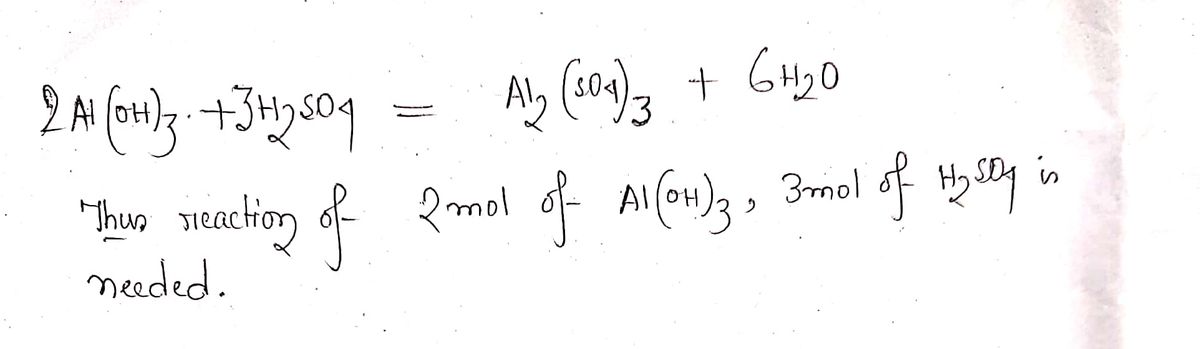 2Al(OH)3 + 3H2SO4 = Al2(SO4)3 + 6H2O
Thus reaction of 2mol of Al(OH)3, 3mol of H2SO4 is
needed.